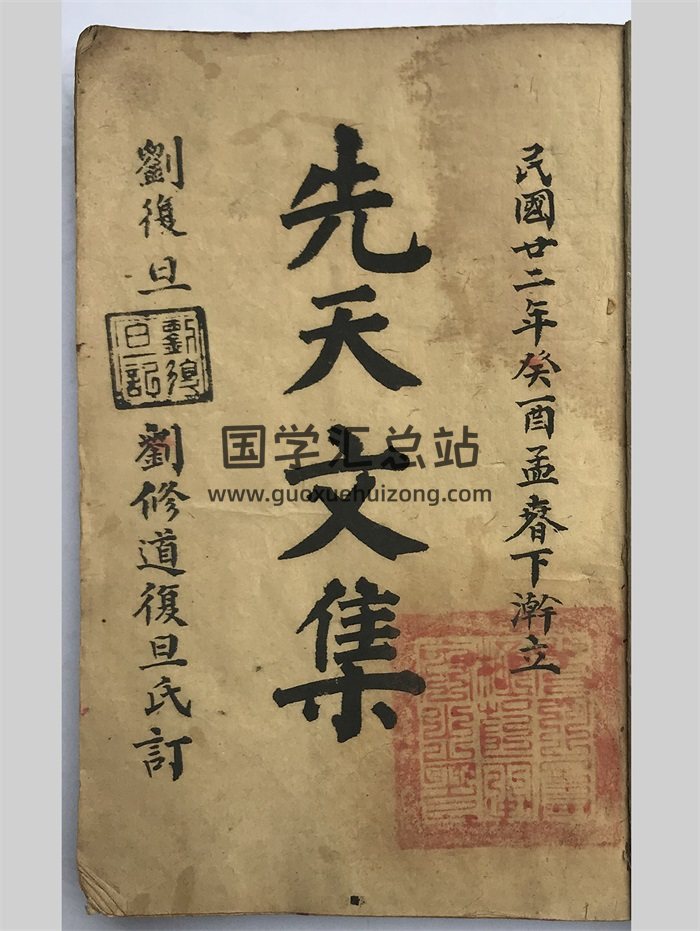 民國廿二年癸酉孟春下澣立
先天文集
劉復旦
劉復旦記
劉修道復旦氏訂
国学汇总站
www.guoxuehuizong.com